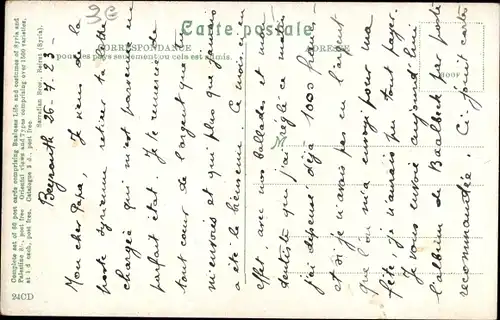 Carte postale
CORRESPONDANCE
ADRESSE
pour les pays seulement ou cela est admis.
Complete set of 60 post cards comprising Business Life and costumes of Syria and
Palestine post free Oriental views and Types comprising over 1500 varieties.
at 1 d each, post free. Catalogue 2 d., post free
Sarrafian Bros., Beirut (Syria).
24CD
Beyrouth 26-7-23
Mon cher Papa, Je viens de la
poste syrienne retirer ta lettre
chargée qui m'est parvenue en
parfait état. Je te remercie de
tout cœur de l'argent que tu
m'envoies et qui plus que jamais
a été le bienvenu. Ce mois-ci en
effet avec nos ballades et mon
dentiste que j'ai réglé ce matin
j'ai dépensé déjà 1000 francs,
et si je n'avais pas eu l'argent
que tu m'a envoyé pour ma
fête, je n'aurais pu tout payer.
Je vous envoie aujourd'hui
l'album de Baalbeck par poste
recommandée. Ci-joint cartes